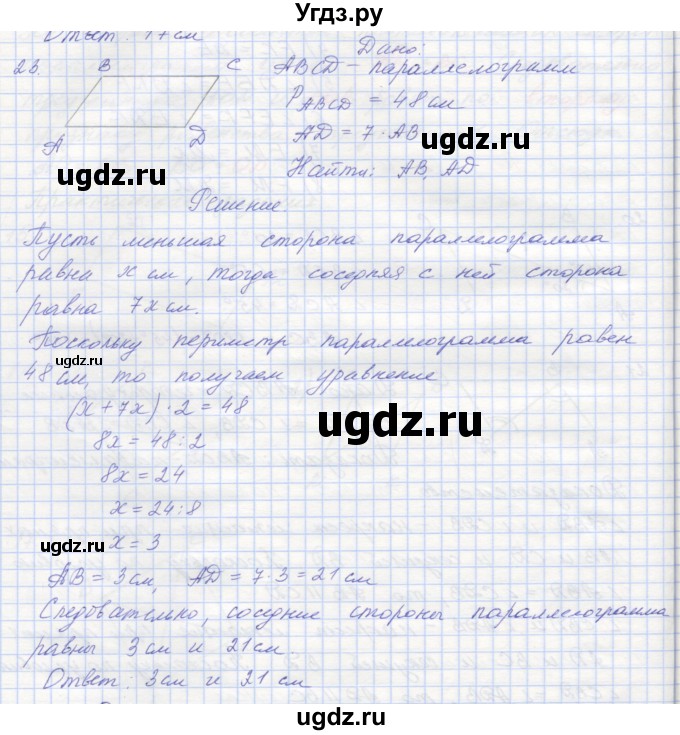 Угдз.ру
Ответ: 17 см
23.
B C
A D
Дано:
ABCD – параллелограмм
P ABCD = 48 см
AD = 7 · AB
Найти: AB, AD
ugdz.ru
ugdz.ru
Решение.
Пусть меньшая сторона параллелограмма
равна x см, тогда соседняя с ней сторона
равна 7x см.
Поскольку периметр параллелограмма равен
ugdz.ru
48 см, то получаем уравнение
(x + 7x) · 2 = 48
ugdz.ru
8x = 48 : 2
8x = 24
x = 24 : 8
ugdz.ru
x = 3
AB = 3 см, AD = 7 · 3 = 21 см
ugdz.ru
Следовательно, соседние стороны параллелограмма
равны 3 см и 21 см.
Ответ: 3 см и 21 см
ugdz.ru
ugdz.ru